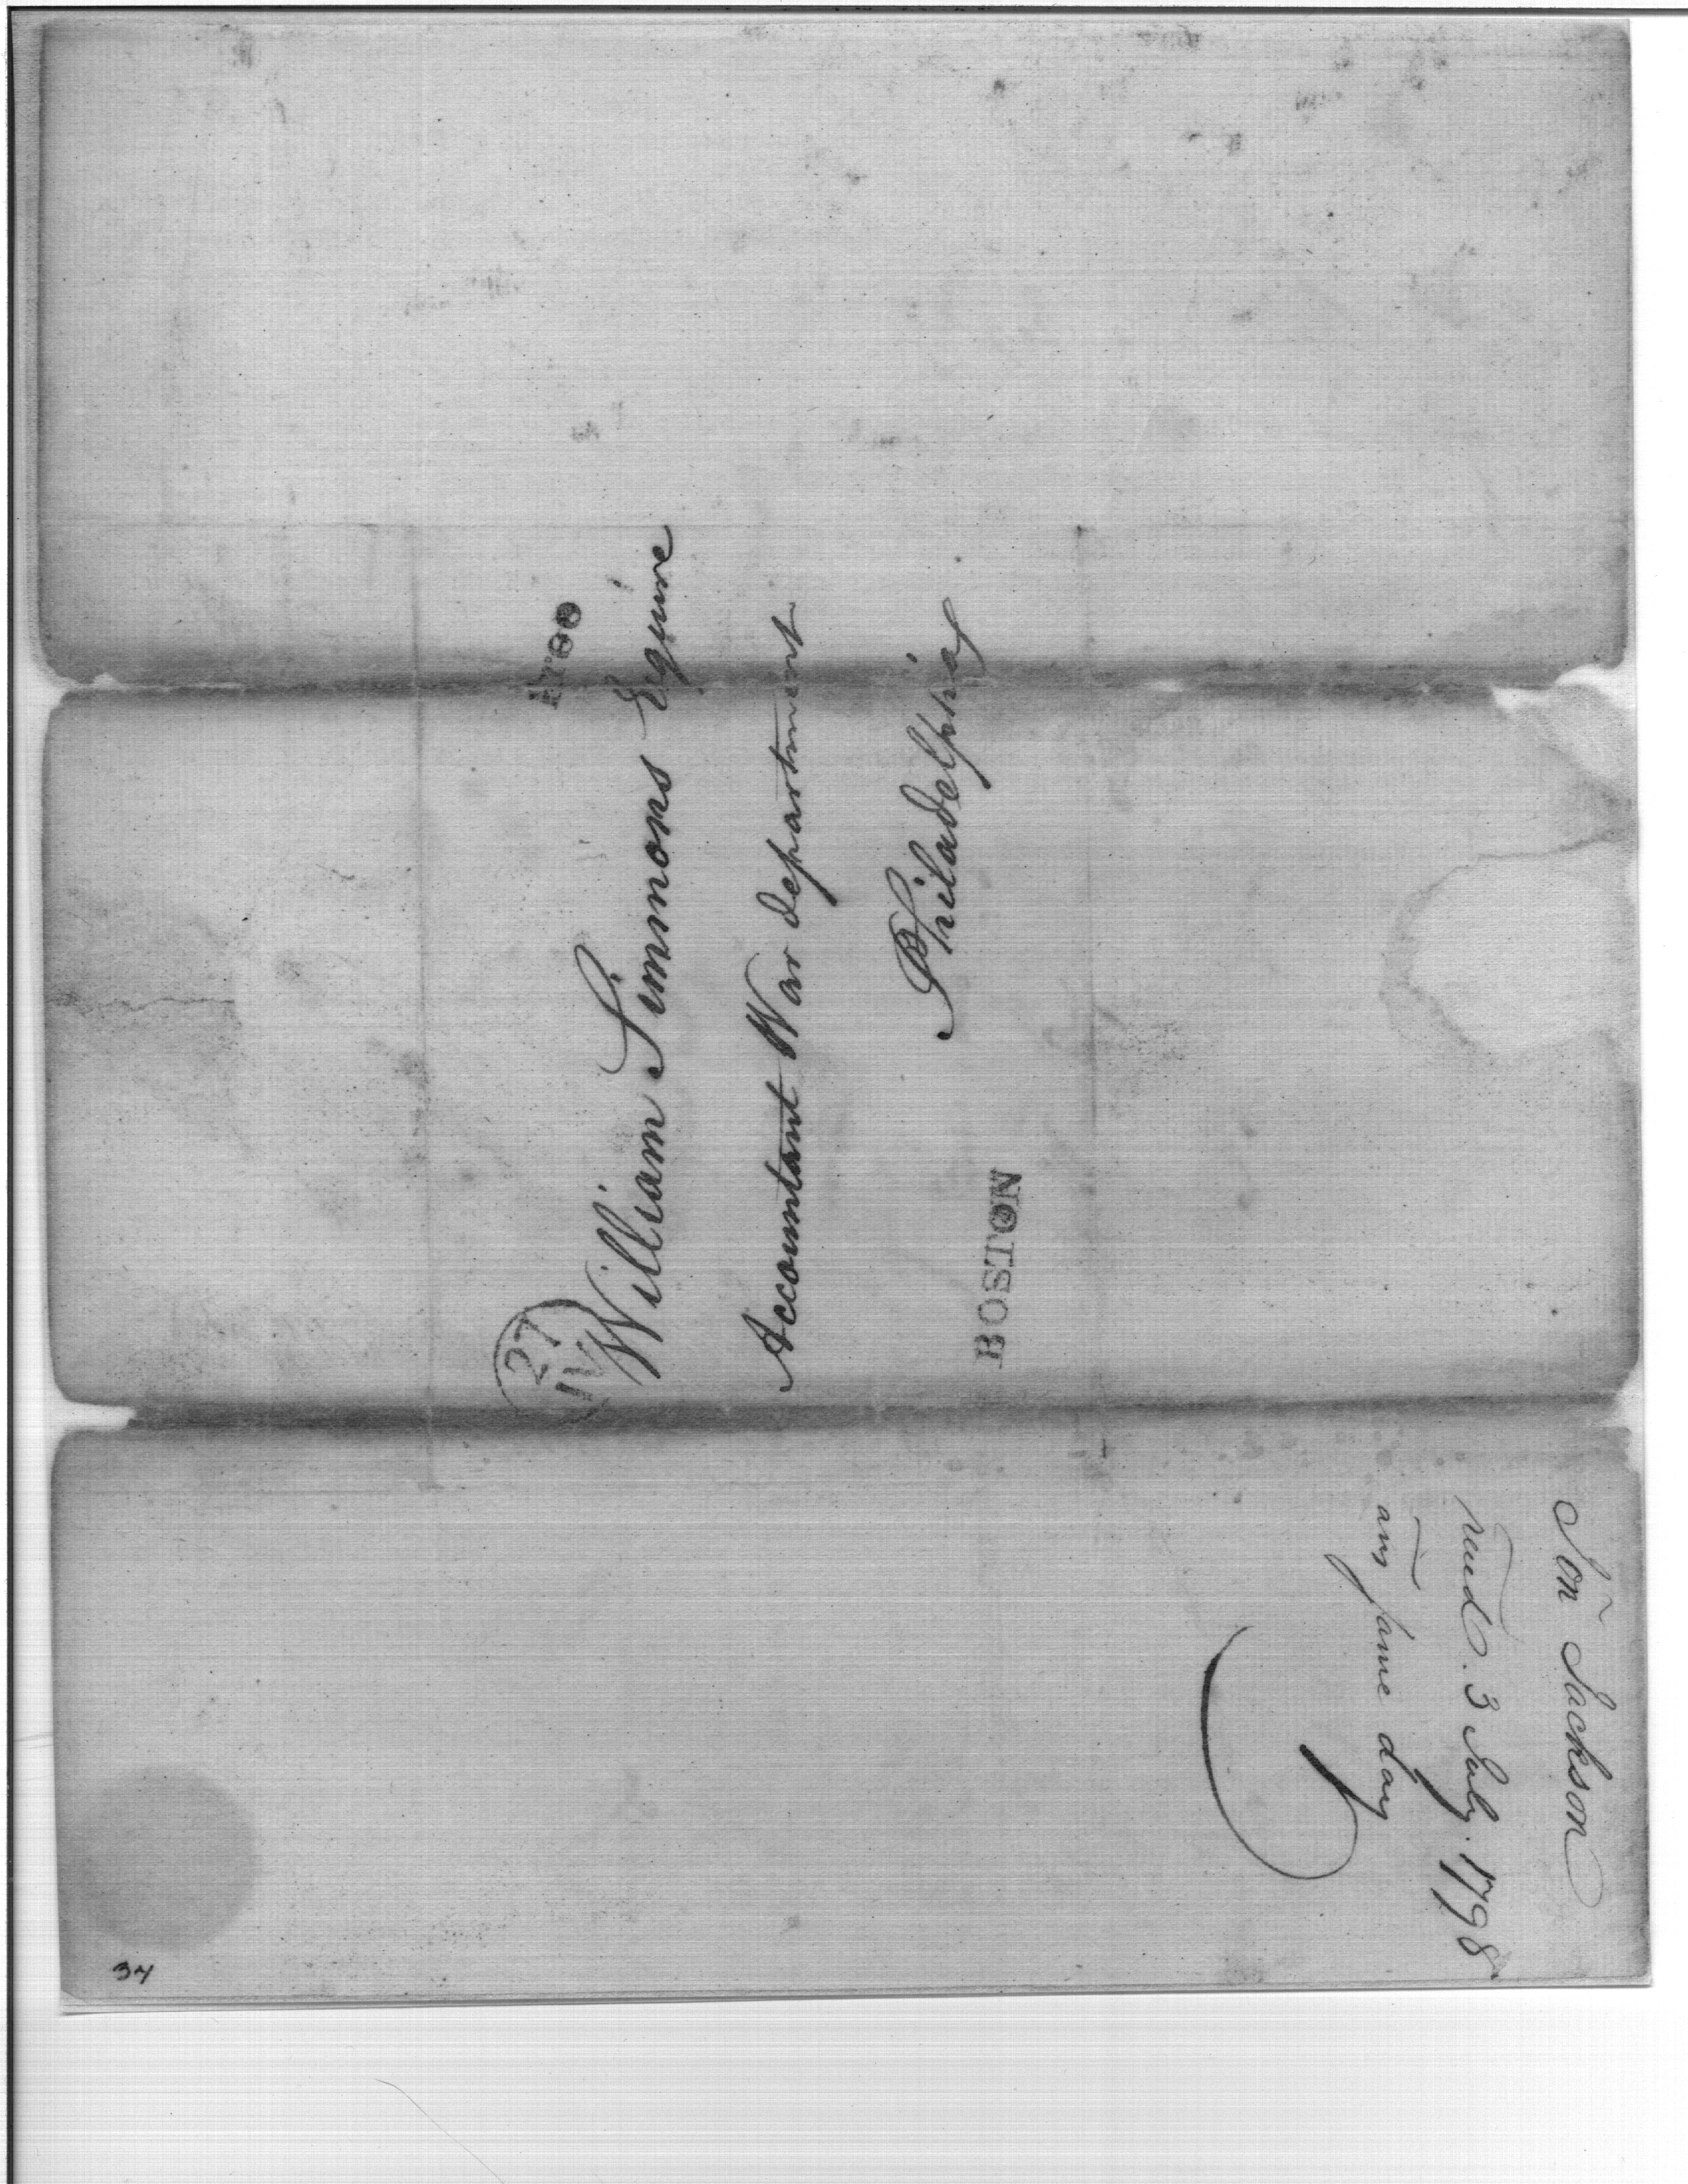 Free
27
IV
William Simmons Esquire
Accountant War department
Philadelphia
BOSTON
Jon Jackson
recd. 3 July. 1798
ans same day
34